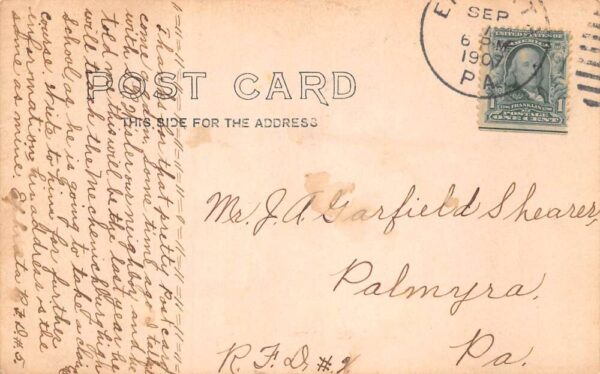 POST CARD
THIS SIDE FOR THE ADDRESS
SEP
6 PM
1907
PA.
UNITED STATES OF
AMERICA
FRANKLIN
1 POSTAGE 1
ONE CENT
Mr. J. A. Garfield Shearer,
Palmyra,
R.F.D. #2 Pa.
Thanks for that pretty Post card
come again. Some time ago I talked
with your neighbor and he
told me this will be the last year he
will teach the Mechanicsburg High
School, as he is going to take a
course. Write to him for further
information, his address is the
same as mine. Ephrata R.F.D. #5